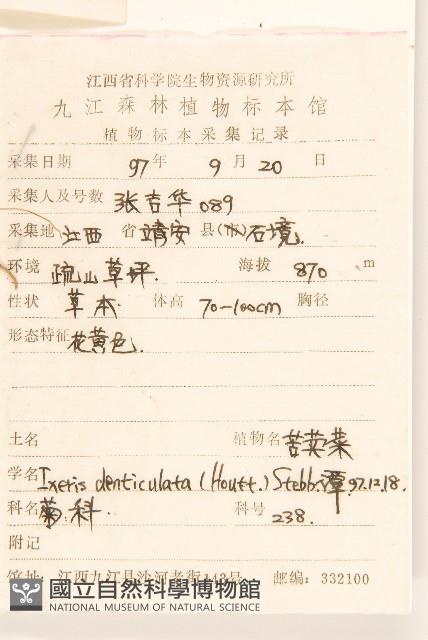 江西省科学院生物资源研究所
九江森林植物标本馆
植物标本采集记录
采集日期 97年 9月 20日
采集人及号数 张吉华 089
采集地 江西 省 靖安 县(市) 石境.
环境 疏山草坪 海拔 870 m
性状 草本. 体高 70-100cm 胸径
形态特征 花黄色.
土名 植物名 苦荬菜
学名 Ixeris denticulata (Houtt.) Stebb. 谭 97.12.18.
科名 菊科. 科号 238.
附记
馆址: 江西九江县沙河老街143号 邮编: 332100
國立自然科學博物館
NATIONAL MUSEUM OF NATURAL SCIENCE